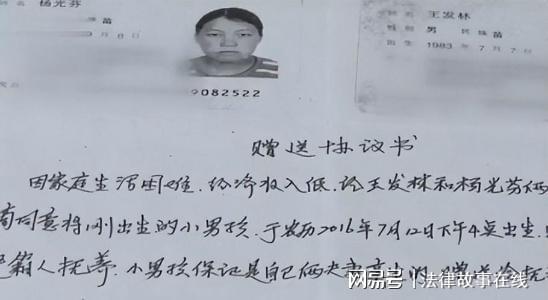 姓名 杨光芬
苗
9月8日
9082522
王发林
性别 男 民族 苗
出生 1983年7月7日
赠送协议书
因家庭生活困难.经济收入低.论王发林和杨光芬俩
商同意将刚出生的小男孩.于农历2016年7月12日下午4点出生.
籍人抚养.小男孩保证是自己俩夫妻
网易号 | 法律故事在线